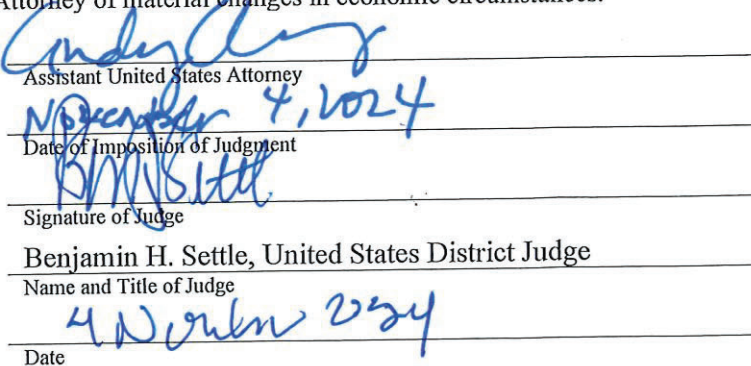 Attorney of material changes in economic circumstances.
Assistant United States Attorney
November 4, 2024
Date of Imposition of Judgment
Signature of Judge
Benjamin H. Settle, United States District Judge
Name and Title of Judge
4 November 2024
Date